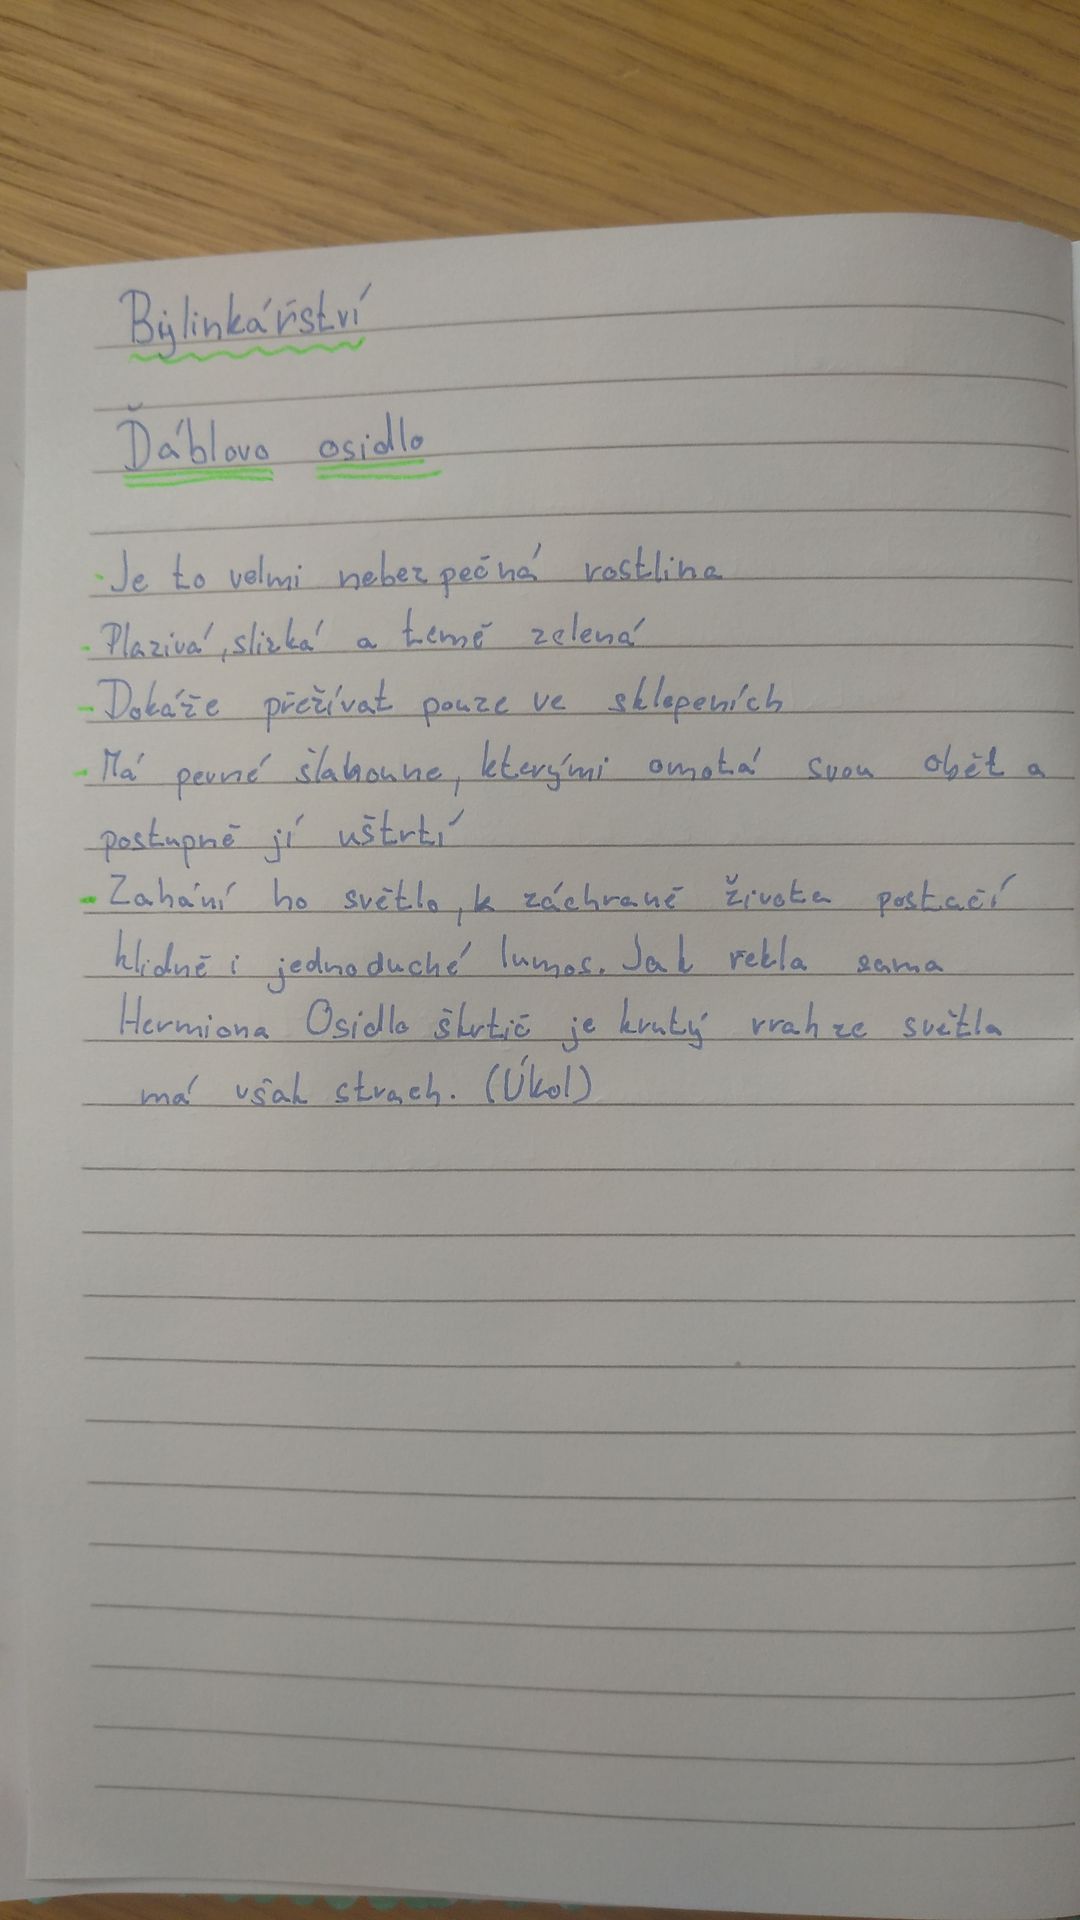 Bylinkářství
Ďáblovo osidlo
- Je to velmi nebezpečná rostlina
- Plazivá, slizká a temě zelená
- Dokáže přežívat pouze ve sklepeních
- Má pevné šlahoune, kterými omotá svou oběť a
postupně jí uštrtí
- Zahání ho světlo, k záchraně života postačí
klidně i jednoduché lumos. Jak řekla sama
Hermiona Osidlo škrtič je krutý vrah ze světla
má však strach. (Úkol)